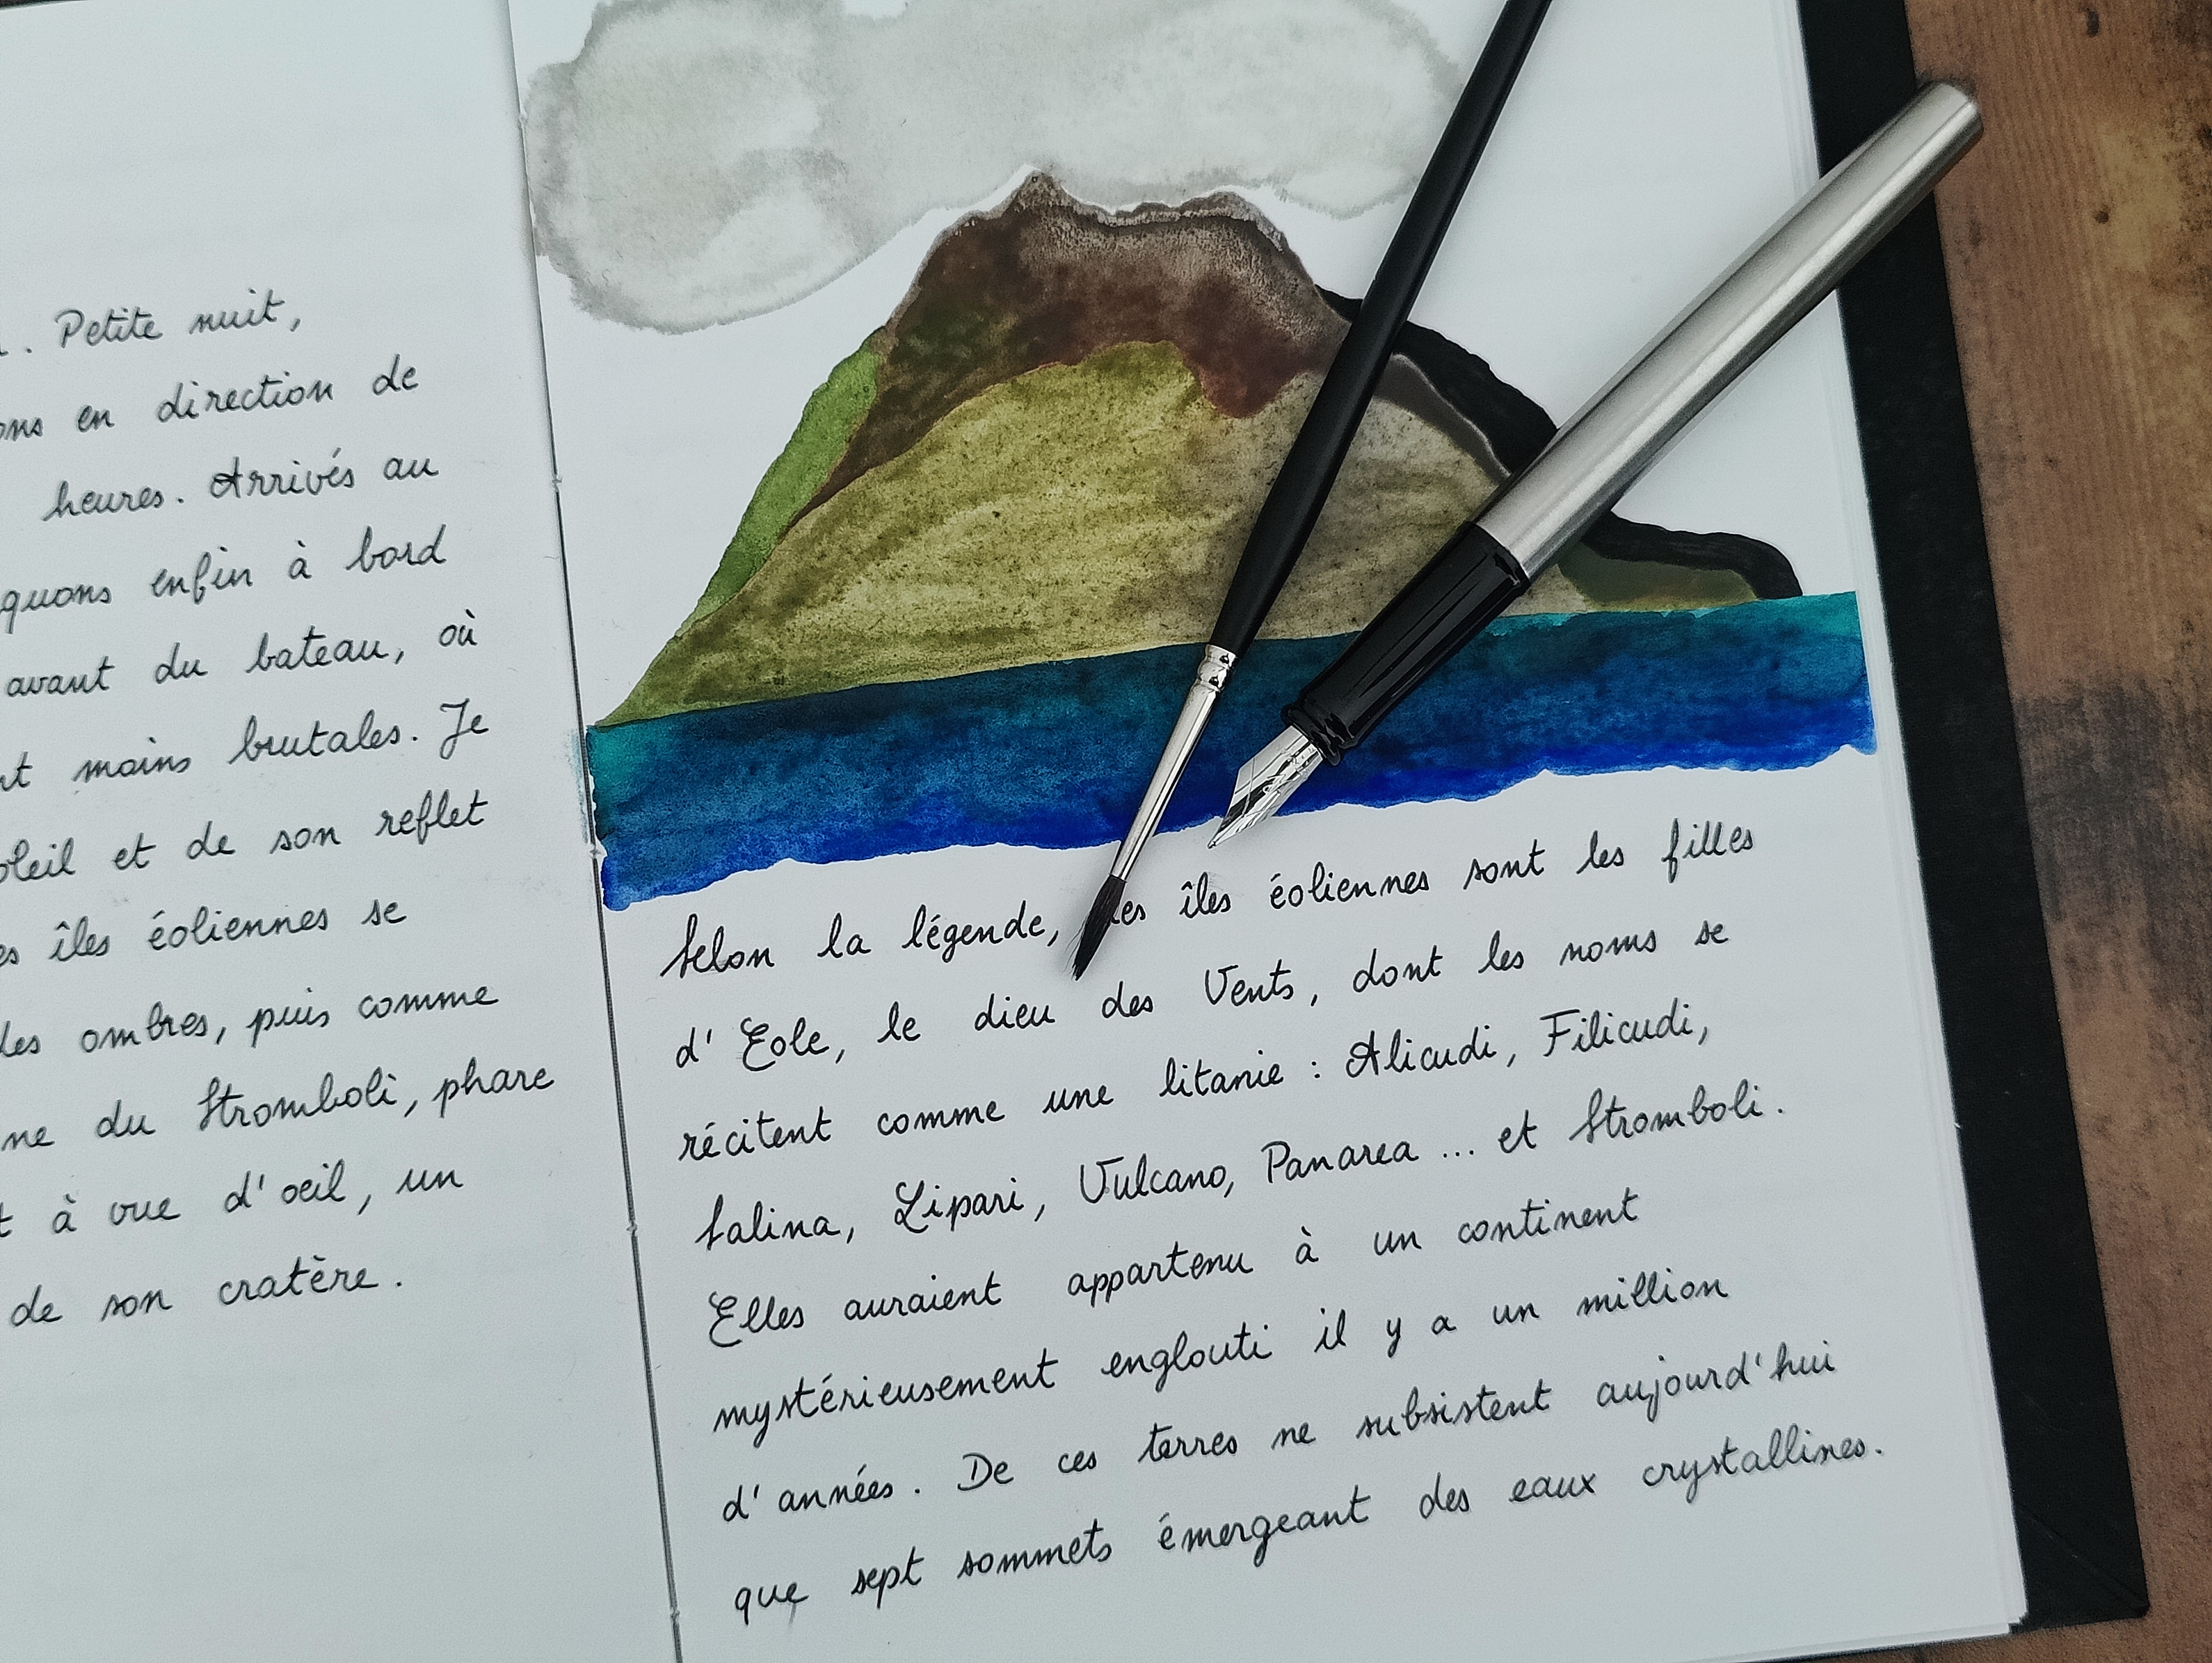 . Petite nuit,
ons en direction de
heures. Arrivés au
quons enfin à bord
avant du bateau, où
nt moins brutales. Je
oleil et de son reflet
es îles éoliennes se
des ombres, puis comme
ne du Stromboli, phare
t à vue d'oeil, un
de son cratère.
Selon la légende, les îles éoliennes sont les filles
d'Eole, le dieu des Vents, dont les noms se
récitent comme une litanie : Alicudi, Filicudi,
Salina, Lipari, Vulcano, Panarea ... et Stromboli.
Elles auraient appartenu à un continent
mystérieusement englouti il y a un million
d'années. De ces terres ne subsistent aujourd'hui
que sept sommets émergeant des eaux crystallines.